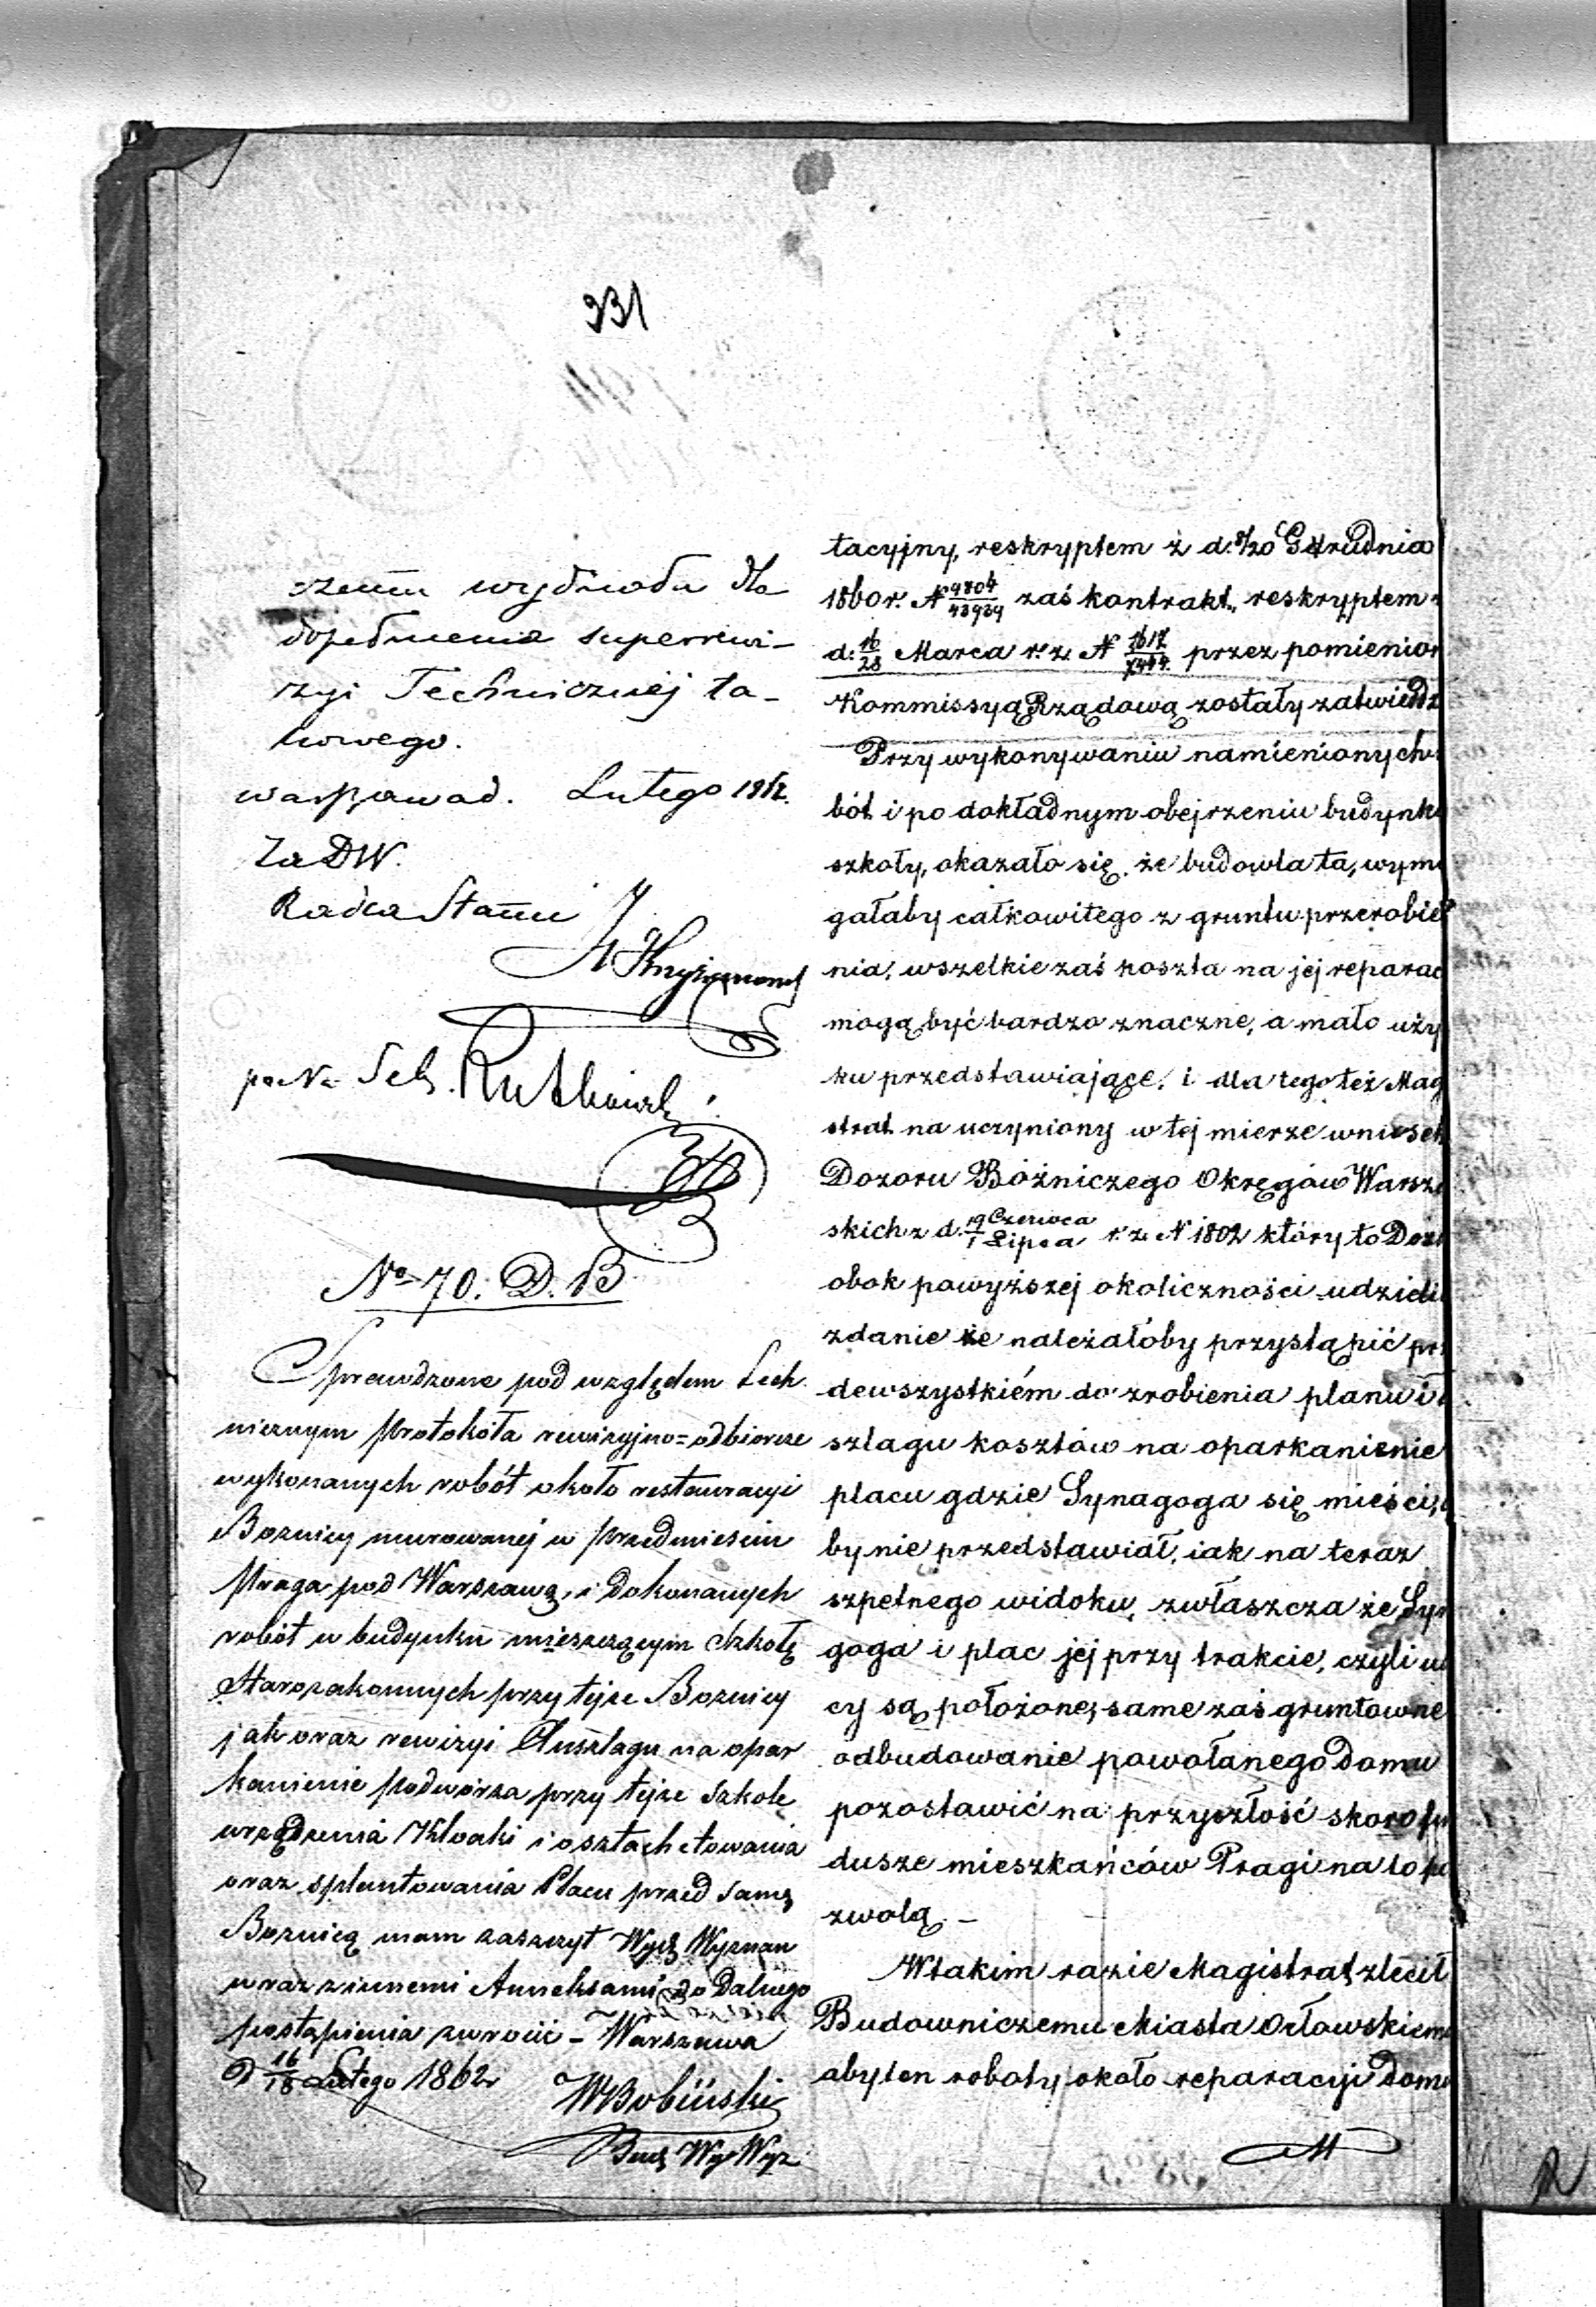 331
szemu wydziału dla
dopełnienia superrewi-
zyi Technicznéj ta-
kowego.
Warszawa d. Lutego 1862.
Za DW.
Radca Stanu
Sek. Rutkowski
No 70. D. B
Sprawdzone pod względem tech
nicznym Protokóła rewizyjno=odbiorcze
wykonanych robót około restauracyi
Boznicy murowanéj w przedmieściu
Praga pod Warszawą, i dokonanych
robót w budynku mieszczącym Szkołę
Starozakonnych przy tejże Boznicy
jak oraz rewizyi Anszlagu na opar
kanienie podwórza przy tejże szkole
urządzenia Kloaki i osztachetowania
oraz splantowania Placu przed samą
Boznicą mam zaszczyt Wydz Wyznan
wraz z innemi Anneksami do Dalszego
postąpienia zwrócić – Warszawa
D 16/18 Lutego 1862r
WBobiński
Bud Wy Wyz
tacyjny, reskryptem z d. 8/20 Grudnia
1860 r. N 9804/48984 zaś kontrakt, reskryptem
d. 16/28 Marca r. z. N 1617/7444 przez pomienion
Kommissyą Rządową zostały zatwierdz
Przy wykonywaniu namienionych
bót i po dokładnym obejrzeniu budynk
szkoły, okazało się, że budowla ta, wyma
gałaby całkowitego z gruntu przerobie
nia, wszelkie zaś koszta na jej reparac
mogą być bardzo znaczne, a mało uży
ku przedstawiające, i dla tego też Mag
strat na uczyniony w tej mierze wniosek
Dozoru Bóżniczego Okręgów Warsza
skich z d. 19 Czerwca/1 Lipca r. z. N 1802 który to Doz
obok powyższej okoliczności udzielił
zdanie że należałoby przystąpić prz
dewszystkiém do zrobienia planu i
szlagu kosztów na oparkanienie
placu gdzie Synagoga się mieści, a
by nie przedstawiał, iak na teraz
szpetnego widoku, zwłaszcza że Syn
goga i plac jej przy trakcie, czyli u
cy są położone, same zaś gruntowne
odbudowanie powołanego Domu
pozostawić na przyszłość skoro fun
dusze mieszkańców Pragi na to po
zwolą. –
W takim razie Magistrat zlecił
Budowniczemu Miasta Orłowskiemu
aby ten roboty około reparacyi Domu